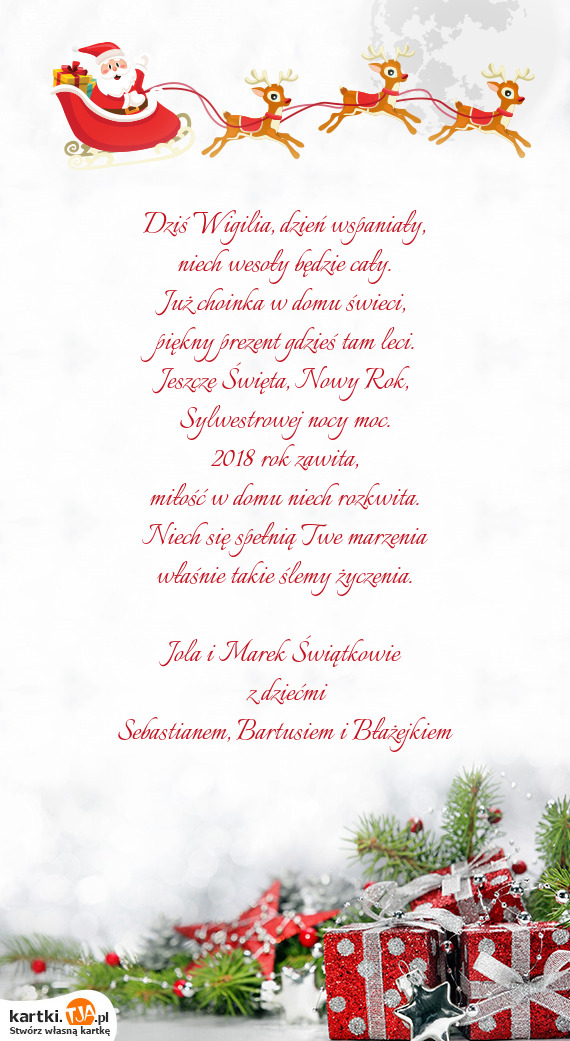 Dziś Wigilia, dzień wspaniały,
niech wesoły będzie cały.
Już choinka w domu świeci,
piękny prezent gdzieś tam leci.
Jeszcze Święta, Nowy Rok,
Sylwestrowej nocy moc.
2018 rok zawita,
miłość w domu niech rozkwita.
Niech się spełnią Twe marzenia
właśnie takie ślemy życzenia.
Jola i Marek Świątkowie
z dziećmi
Sebastianem, Bartusiem i Błażejkiem
kartki.TJA.pl
Stwórz własną kartkę